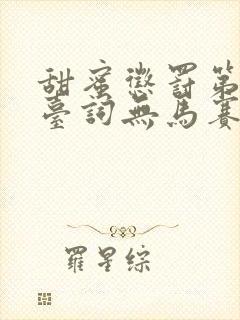 甜蜜懲罰第
臺詞無馬賽
羅星綜